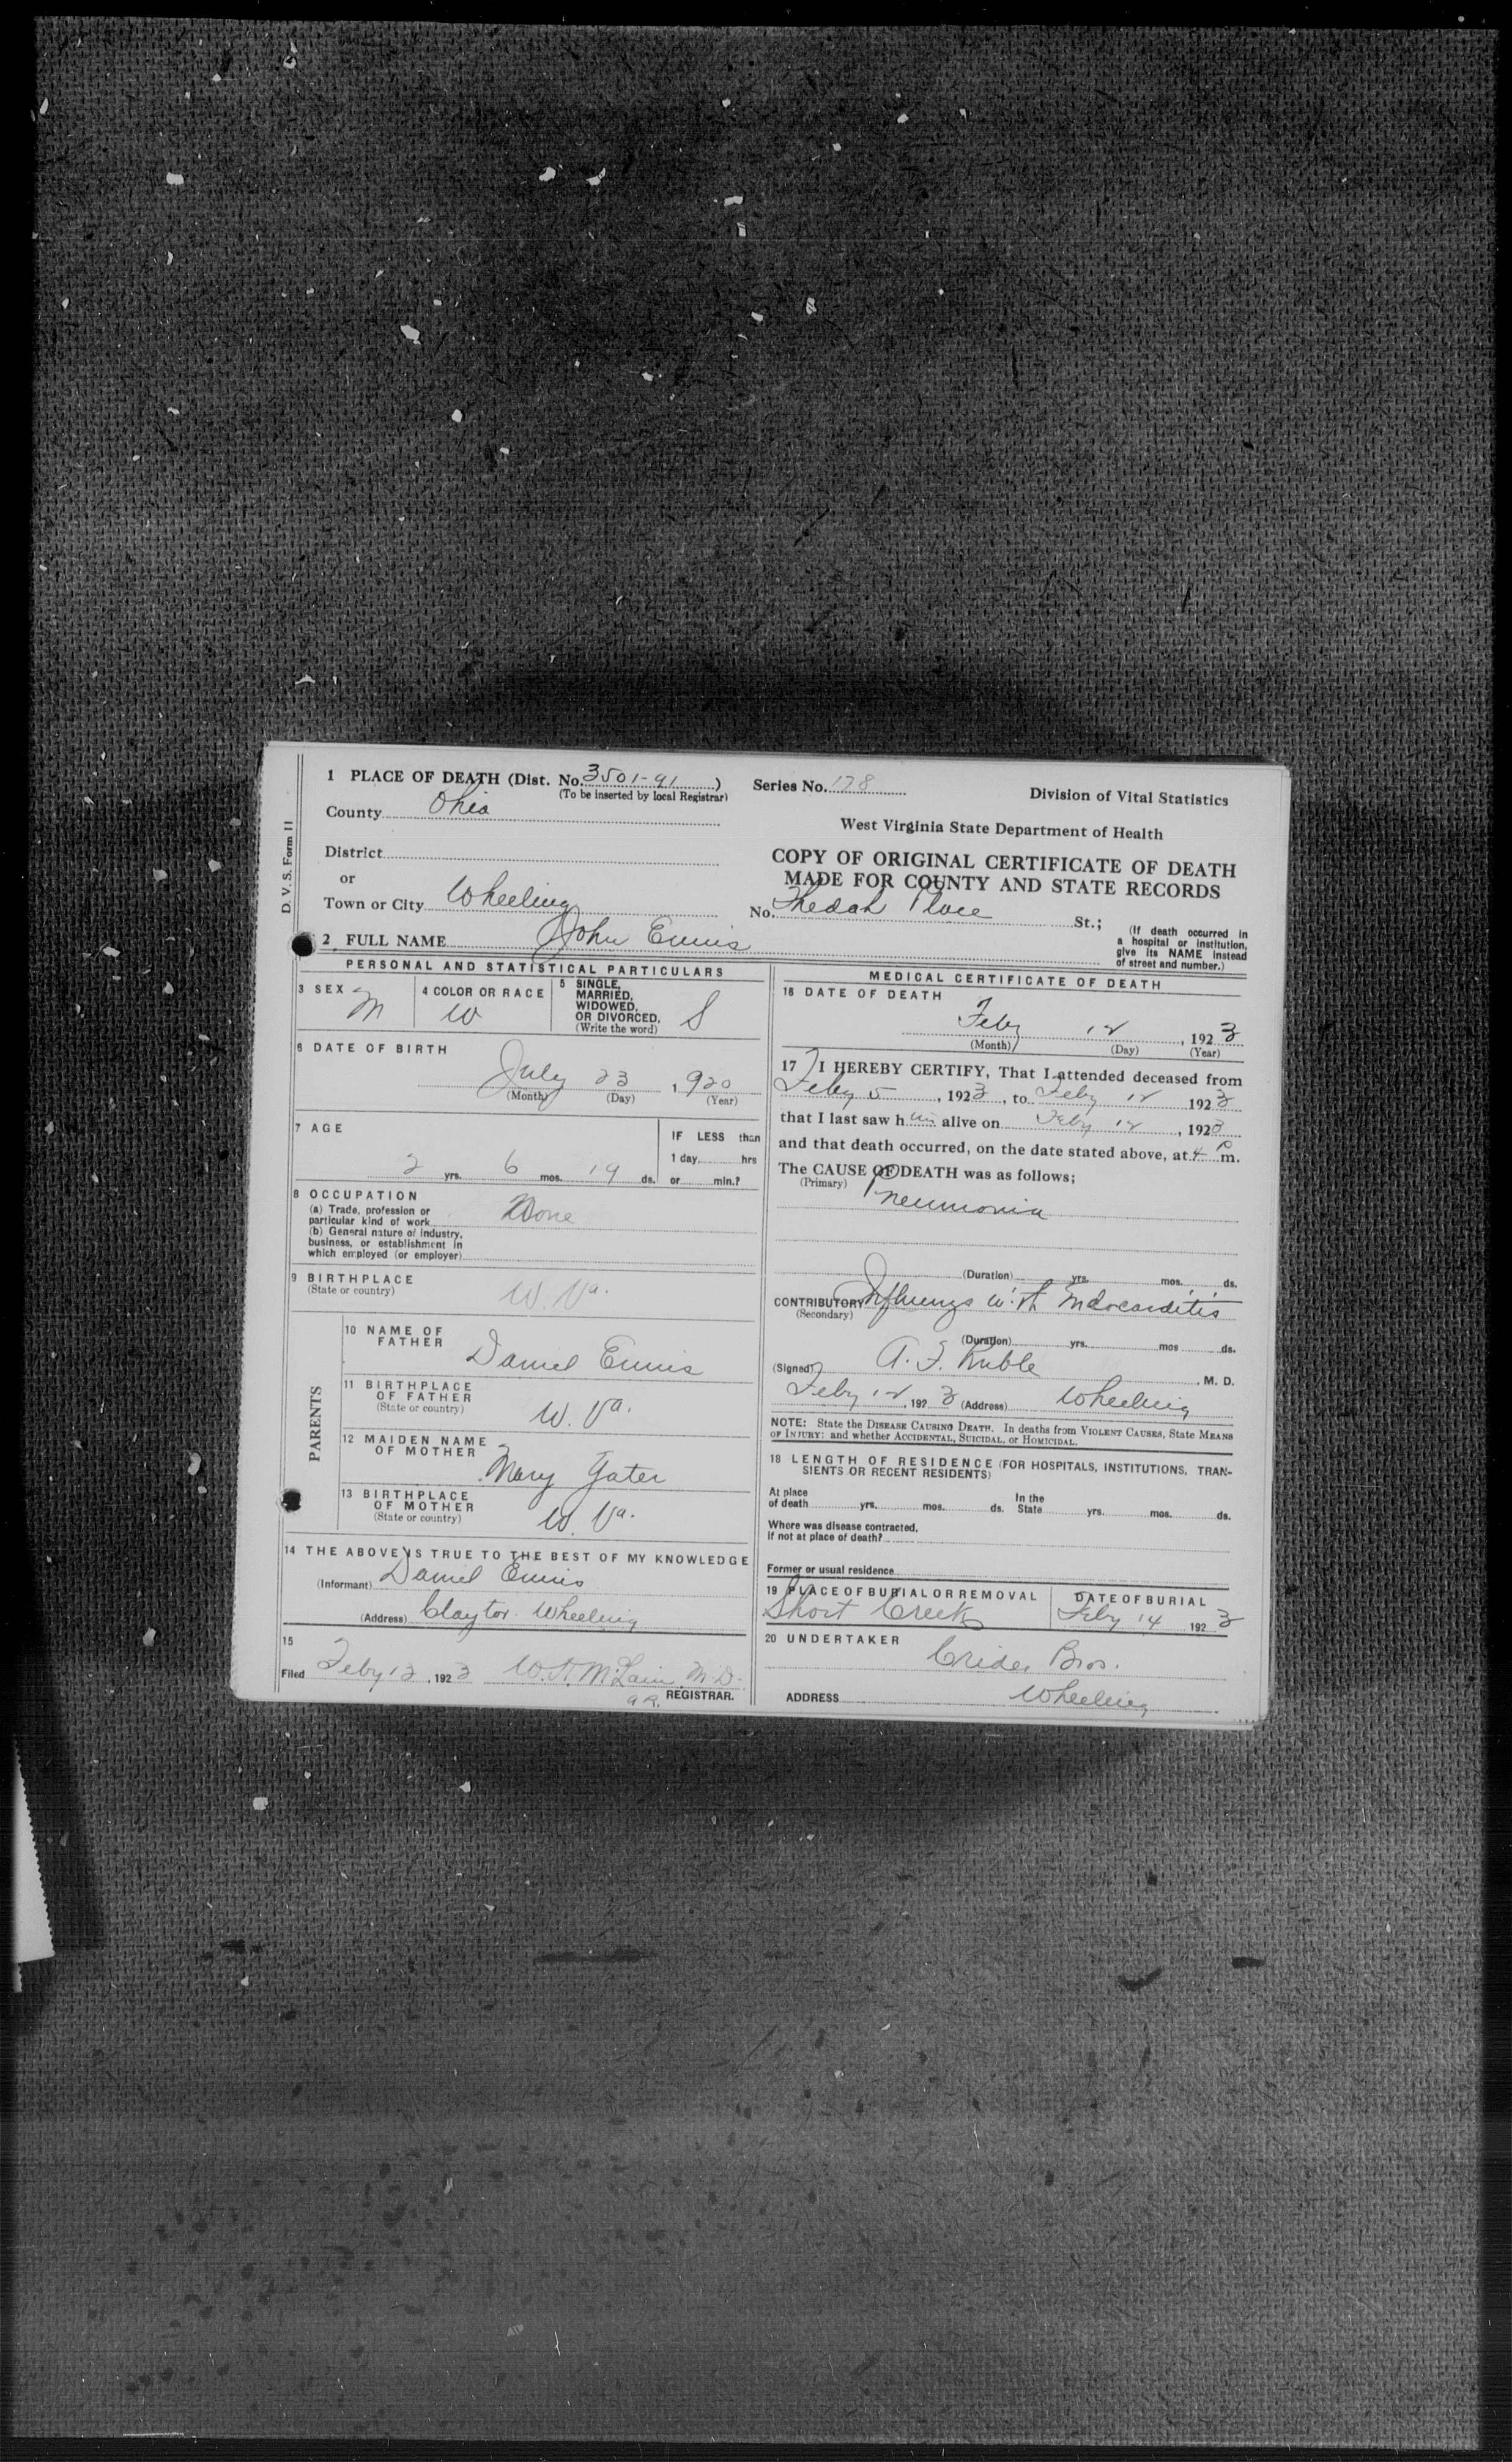 D. V. S. Form 11
1 PLACE OF DEATH (Dist. No. 3501-91)
(To be inserted by local Registrar)
Series No. 178
Division of Vital Statistics
County Ohio
West Virginia State Department of Health
District
COPY OF ORIGINAL CERTIFICATE OF DEATH
MADE FOR COUNTY AND STATE RECORDS
or
Town or City Wheeling
No. Thedah Place St.;
(If death occurred in a hospital or institution, give its NAME instead of street and number.)
2 FULL NAME John Ennis
PERSONAL AND STATISTICAL PARTICULARS
3 SEX M
4 COLOR OR RACE W
5 SINGLE, MARRIED, WIDOWED, OR DIVORCED, (Write the word) S
6 DATE OF BIRTH
July 23, 1920
(Month) (Day) (Year)
7 AGE
2 yrs. 6 mos. 19 ds.
IF LESS than
1 day, hrs
or min.?
8 OCCUPATION
(a) Trade, profession or
particular kind of work None
(b) General nature of industry,
business, or establishment in
which employed (or employer)
9 BIRTHPLACE
(State or country) W. Va.
PARENTS
10 NAME OF FATHER Daniel Ennis
11 BIRTHPLACE OF FATHER
(State or country) W. Va.
12 MAIDEN NAME OF MOTHER Mary Yater
13 BIRTHPLACE OF MOTHER
(State or country) W. Va.
14 THE ABOVE IS TRUE TO THE BEST OF MY KNOWLEDGE
(Informant) Daniel Ennis
(Address) Clayton Wheeling
15
Filed Feby 13, 1923 W. H. McLain, M.D.
REGISTRAR.
MEDICAL CERTIFICATE OF DEATH
16 DATE OF DEATH
Feby 12, 1923
(Month) (Day) (Year)
17 I HEREBY CERTIFY, That I attended deceased from
Feby 5, 1923, to Feby 12 1923
that I last saw him alive on Feby 12, 1923
and that death occurred, on the date stated above, at 4 P m.
The CAUSE OF DEATH was as follows;
(Primary) Pneumonia
(Duration) yrs. mos. ds.
CONTRIBUTORY Influenza with Endocarditis
(Secondary)
(Duration) yrs. mos ds.
(Signed) A. F. Ruble, M. D.
Feby 12, 1923 (Address) Wheeling
NOTE: State the DISEASE CAUSING DEATH. In deaths from VIOLENT CAUSES, State MEANS
OF INJURY: and whether ACCIDENTAL, SUICIDAL, or HOMICIDAL.
18 LENGTH OF RESIDENCE (FOR HOSPITALS, INSTITUTIONS, TRAN-
SIENTS OR RECENT RESIDENTS)
At place of death yrs. mos. ds. In the State yrs. mos. ds.
Where was disease contracted,
If not at place of death?
Former or usual residence
19 PLACE OF BURIAL OR REMOVAL
Short Creek
DATE OF BURIAL
Feby 14 1923
20 UNDERTAKER
Crider Bros.
ADDRESS Wheeling